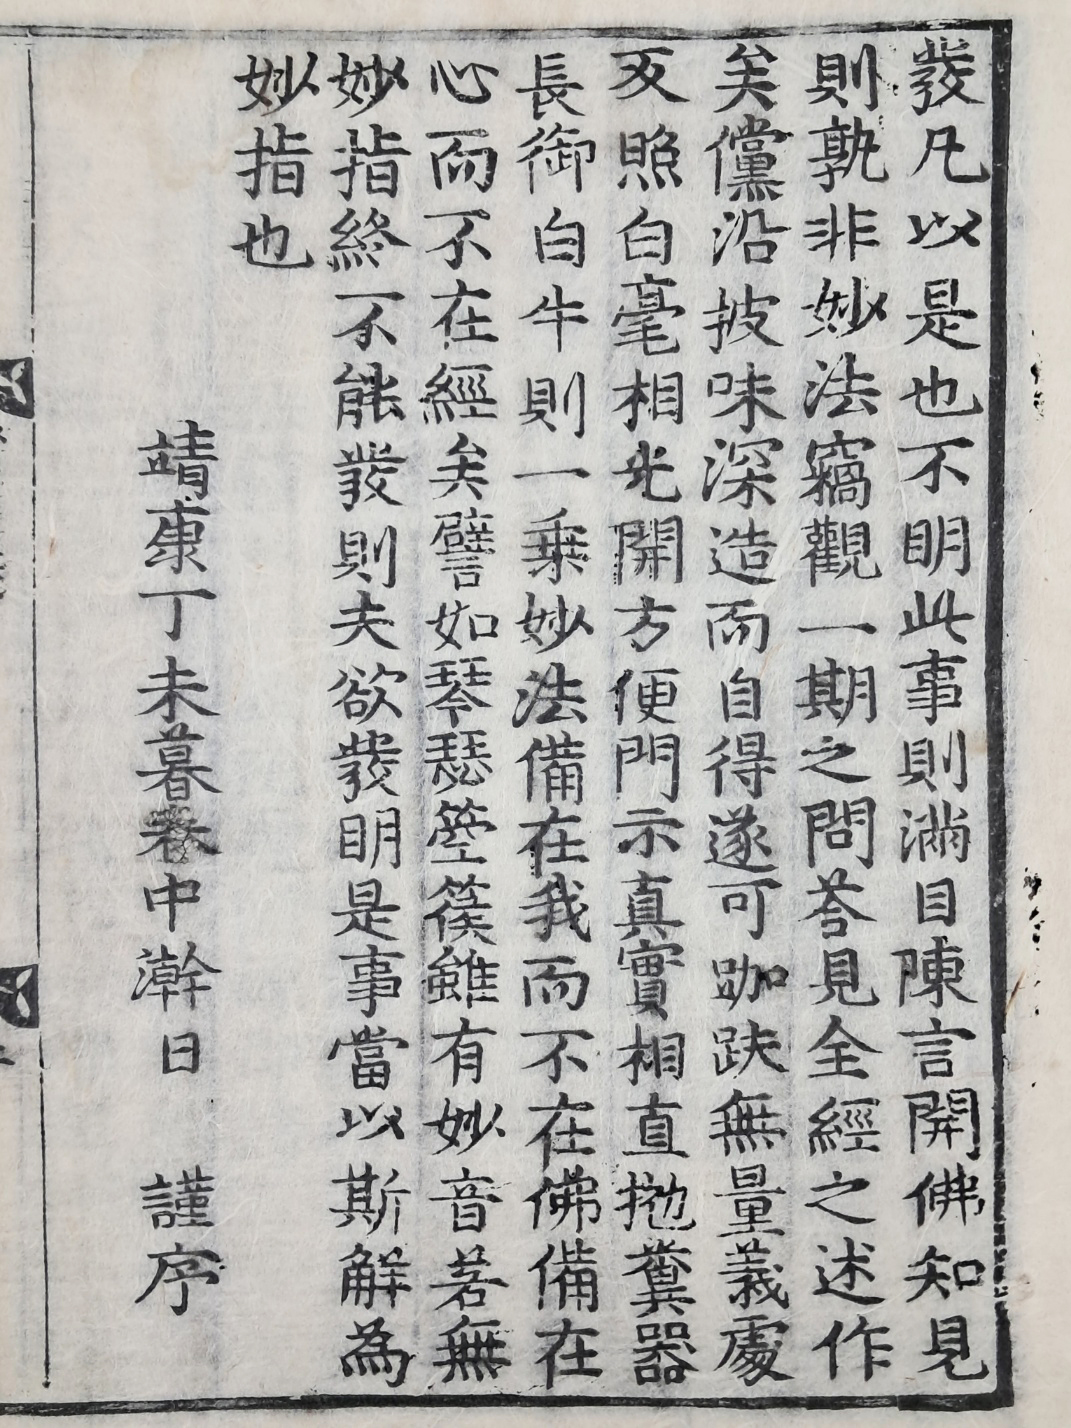 發凡以是也不明此事則滿目陳言開佛知見
則孰非妙法竊觀一期之問荅見全經之述作
矣儻沿披味深造而自得遂可跏趺無量義處
反照白毫相光開方便門示真實相直拋糞器
長御白牛則一乗妙法備在我而不在佛備在
心而不在經矣譬如琴瑟箜篌雖有妙音若無
妙指終不能發則夫欲發明是事當以斯解為
妙指也
靖康丁未暮春中澣日　謹序